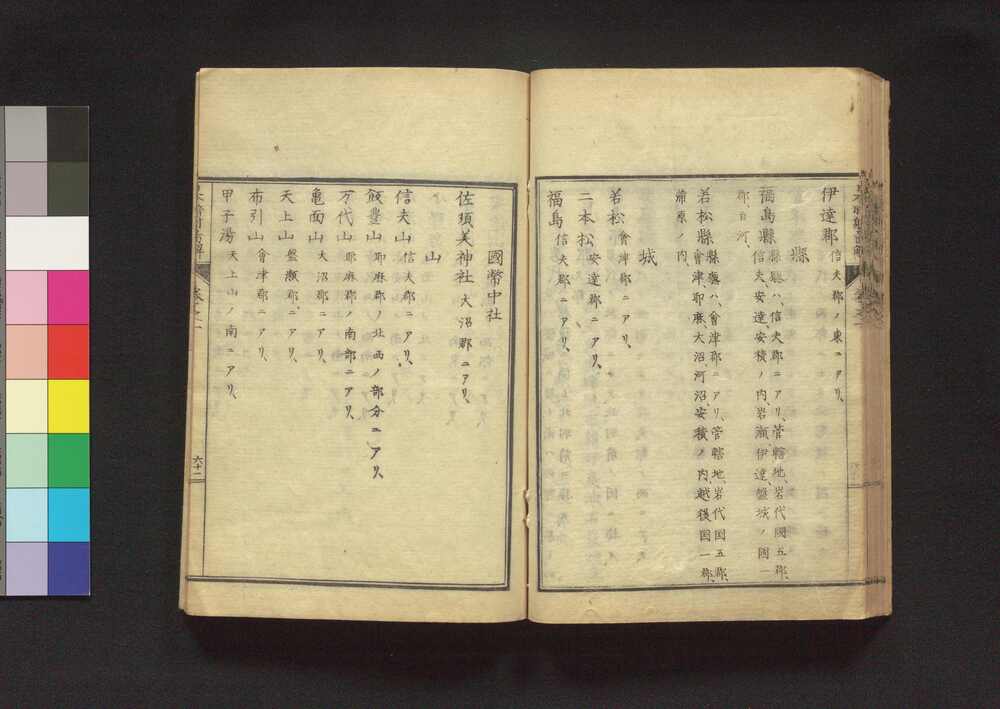 伊達郡 信夫郡ノ東ニアリ、
縣
福島縣 縣廳ハ、信夫郡ニアリ、管轄地、岩代国五郡、
信夫、安達、安積ノ内、岩瀬、伊達、盤城ノ國一
郡白河、
若松縣 縣廳ハ、會津郡ニアリ、管轄地、岩代国五郡、
會津、耶麻、大沼、河沼、安積ノ内、越後国一郡、
蒲原ノ内、
城
若松 會津郡ニアリ、
二本松 安達郡ニアリ、
福島 信夫郡ニアリ、
國幣中社
佐須美神社 大沼郡ニアリ、
山
信夫山 信夫郡ニアリ、
飯豊山 耶麻郡ノ北西ノ部分ニアリ、
万代山 耶麻郡ノ南部ニアリ、
亀面山 大沼郡ニアリ、
天上山 盤瀬郡ニアリ、
布引山 會津郡ニアリ、
甲子湯 天上山ノ南ニアリ、
六十二